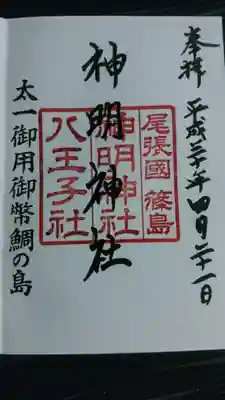 奉拝
平成三十年四月二十一日
神明神社
尾張國篠島
神明神社
八王子社
太一御用御幣鯛の島